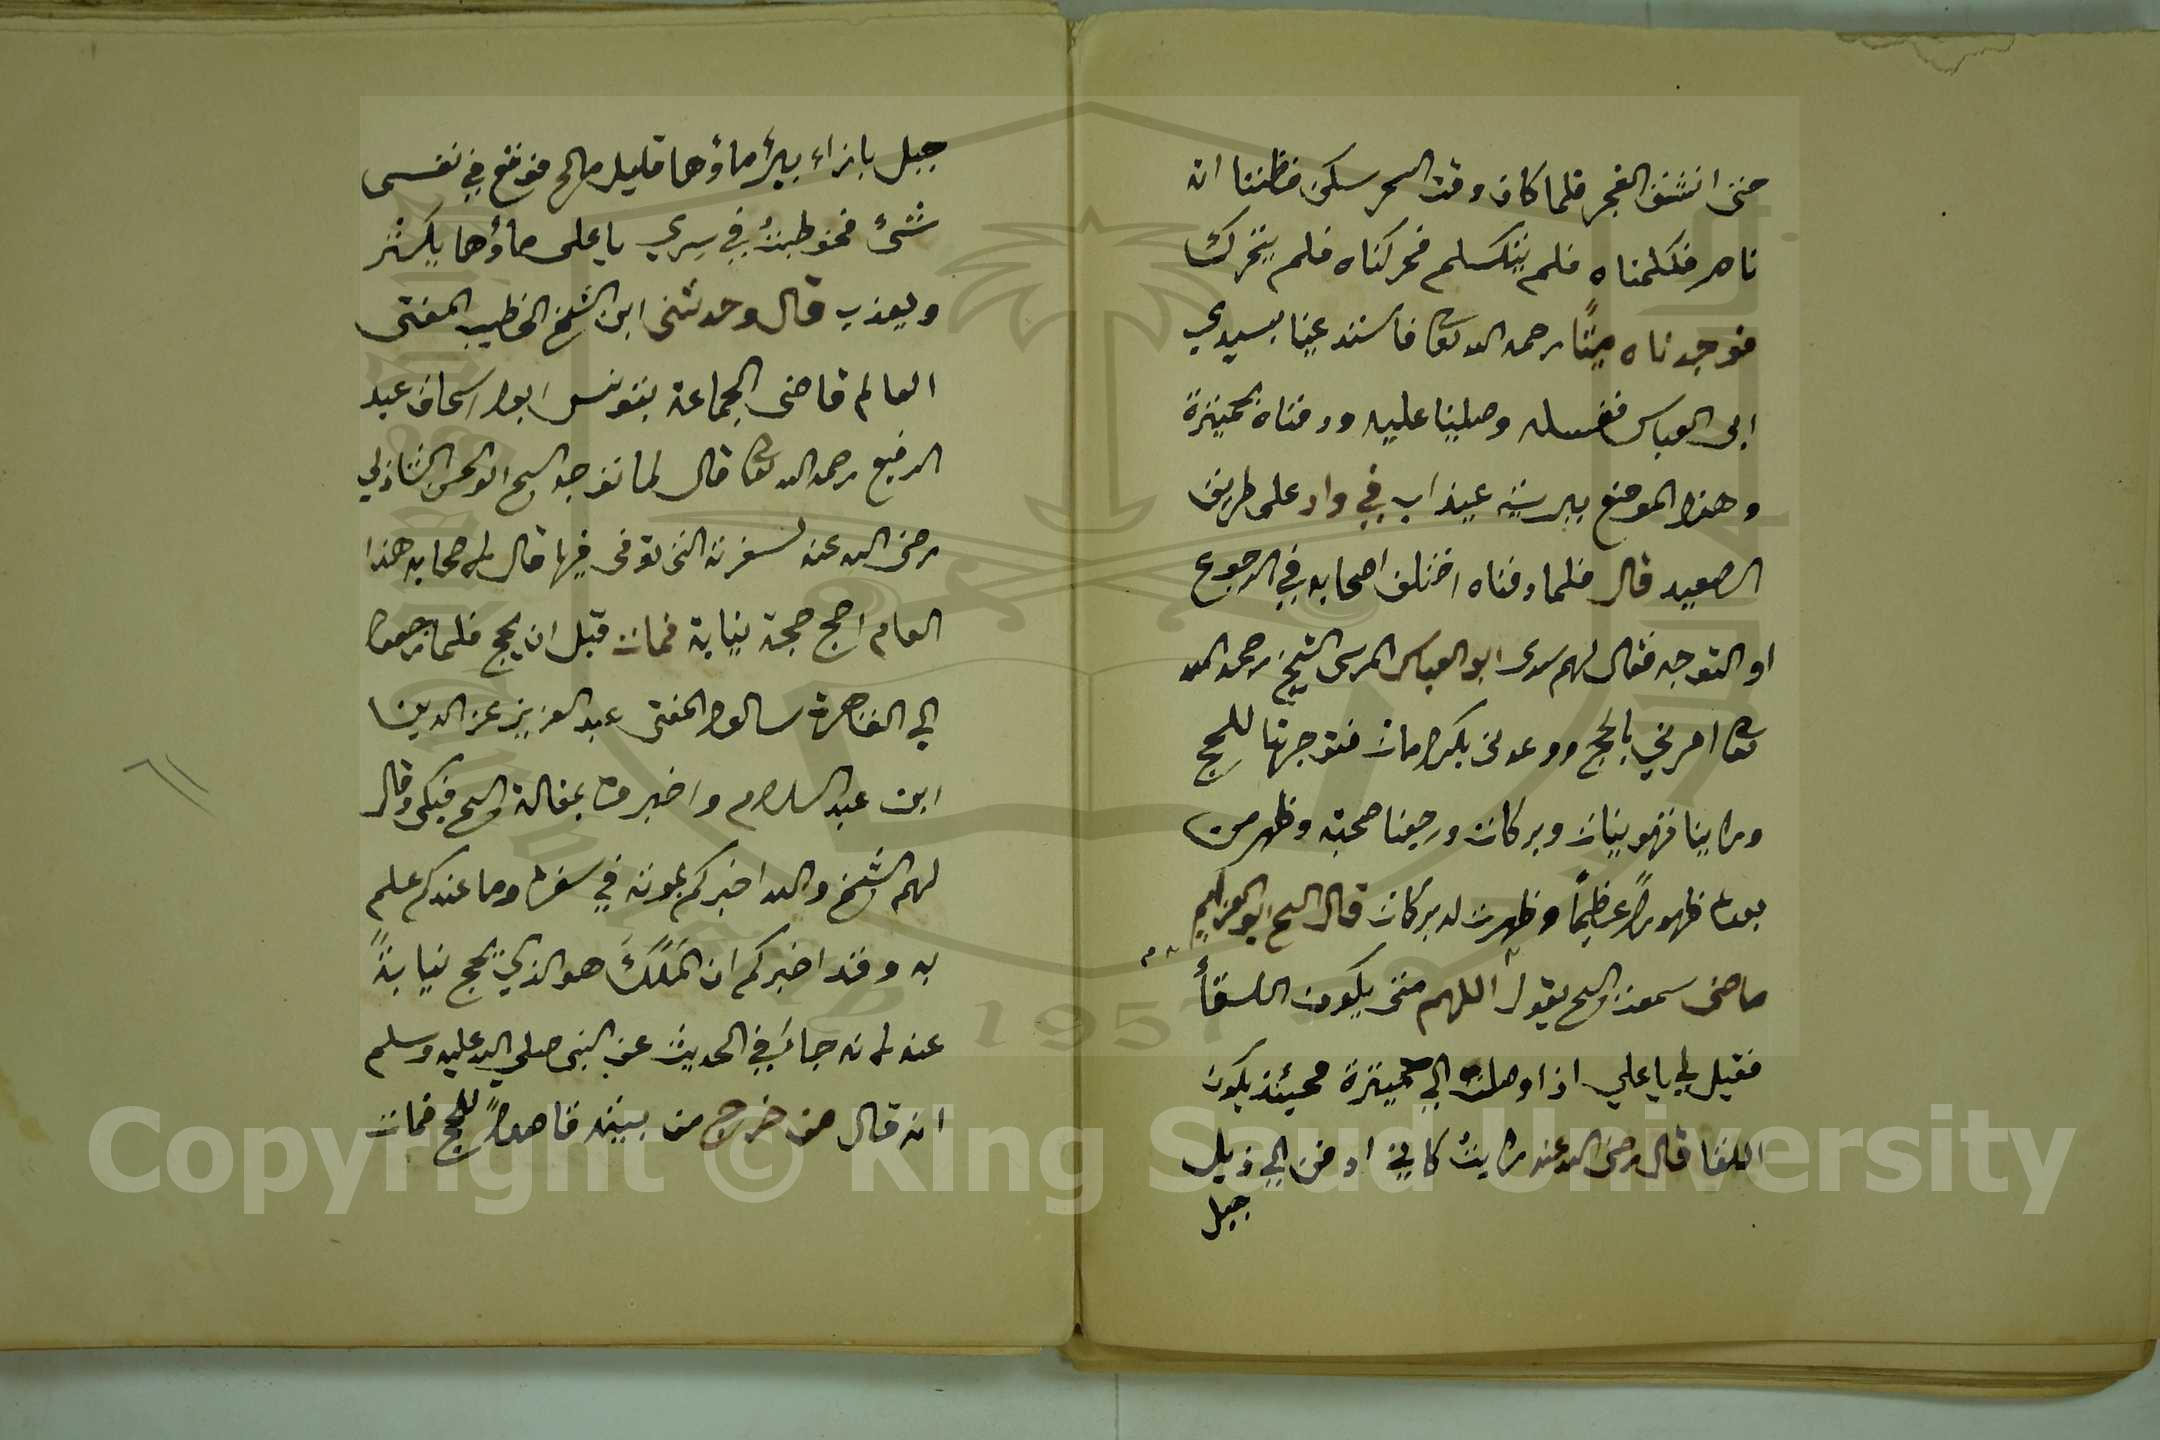 حتى انشق الفجر فلما كان وقت السحر سكن فظننا انه
نام فكلمناه فلم يتكلم فحركناه فلم يتحرك
فوجدناه ميتًا رحمه الله تعا فاستدعينا بسيدي
ابى العباس فغسله وصلينا عليه ودفناه بحميثرة
وهذا الموضع ببرية عيذاب في واد على طريق
الصعيد قال فلما دفناه اختلف اصحابه في الرجوع
او التوجه فقال لهم سيدى ابو العباس المرسى الشيخ رحمه الله
تعا امرني بالحج ووعدنى بكرامات فتوجهنا للحج
وراينا تهوينات وبركات ورجعنا صحبته وظهر من
بعده ظهورًا عظيمًا وظهرت له بركات قال الشيخ ابو العزايم
ماضى سمعت الشيخ يقول اللهم متى يكون اللقأ
فقيل لي يا علي اذا وصلت الي حميثرة فحينئذ يكون
اللقا قال رضى الله عنه رايت كاني ادفن الي ذيل
جبل
جبل بازاء بير ماؤها قليل مالح فوقع في نفسى
شئ فخوطبت في سري يا على ماؤها يكثر
ويعذب قال وحدثنى ابن الشيخ الخطيب المفتى
العالم قاضى الجماعة بتونس ابو اسحاق عبد
الرفيع رحمه الله تعا قال لما توجه الشيخ ابو الحسن الشاذلي
رضى الله عنه لسفرته التى توفى فيها قال لاصحابه هذا
العام احج حجة نيابة فمات قبل ان يحج فلما رجعوا
الي القاهرة سالوا المفتى عبد العزيز عز الدين
ابن عبد السلام واخبروه بمقالة الشيخ فبكى وقال
لهم الشيخ والله اخبركم بموته في سفره وما عندكم علم
به وقد اخبركم ان الملك هو الذي يحج نيابةً
عنه لانه جاء في الحديث عن النبى صلي الله عليه وسلم
انه قال من خرج من بيته قاصدًا للحج فمات
Copyright © King Saud University
1957